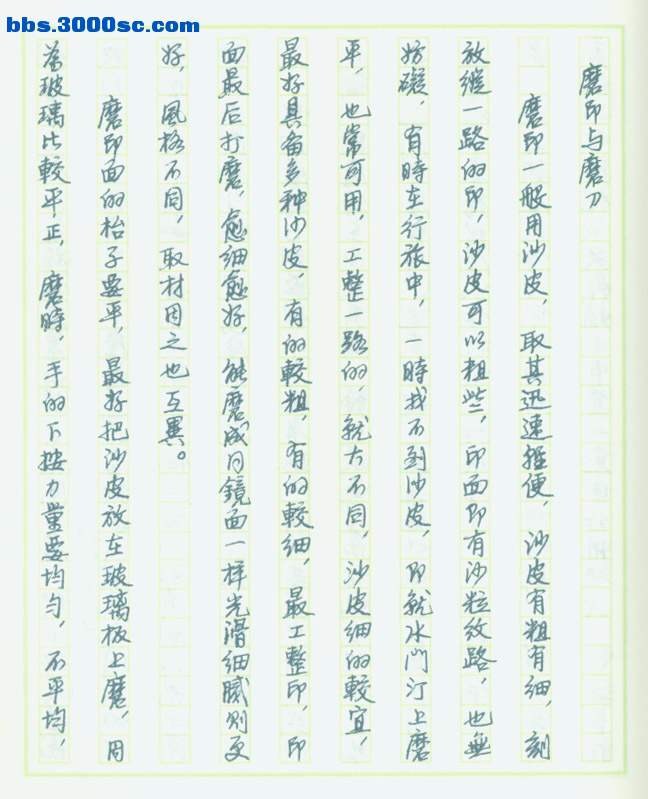 bbs.3000sc.com
磨印与磨刀
磨印一般用沙皮，取其迅速輕便，沙皮有粗有细，刻
放纵一路的印，沙皮可以粗些，印面即有沙粒纹路，也無
妨礙，有時在行旅中，一時找不到沙皮，即就水門汀上磨
平，也常可用，工整一路的，就大不同，沙皮细的較宜，
最好具备多种沙皮，有的較粗，有的較细，最工整印，印
面最后打磨，愈细愈好，能磨成同鏡面一样光滑细腻则更
好，風格不同，取材因之也互異。
磨印面的枱子要平，最好把沙皮放在玻璃板上磨，因
为玻璃比較平正，磨時，手的下按力量要均匀，不平均，